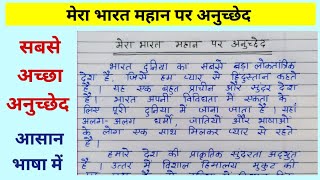 मेरा भारत महान पर अनुच्छेद
सबसे
अच्छा
अनुच्छेद
आसान
भाषा में
मेरा भारत महान पर अनुच्छेद
भारत दुनिया का सबसे बड़ा लोकतांत्रिक
देश है, जिसे हम प्यार से हिंदुस्तान कहते
हैं। यह एक बहुत प्राचीन और सुंदर देश
है। भारत अपनी विविधता में एकता के
लिए पूरी दुनिया में जाना जाता है। यहां
अलग-अलग धर्मों, जातियों और भाषाओं
के लोग एक साथ मिलकर प्यार से रहते
हैं।
हमारे देश की प्राकृतिक सुंदरता अद्भुत
है। उत्तर में विशाल हिमालय मुकुट की